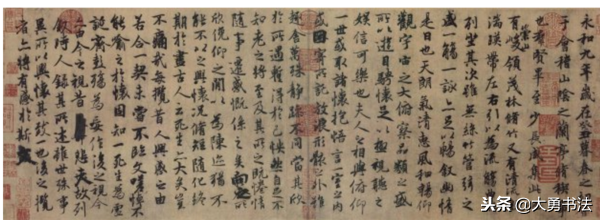 永和九年歲在癸丑暮春之初會
于會稽山陰之蘭亭脩稧事
也羣賢畢至少長咸集此地
有崇山峻領茂林脩竹又有清流激
湍暎帶左右引以為流觴曲水
列坐其次雖無絲竹管弦之
盛一觴一詠亦足以暢敘幽情
是日也天朗氣清惠風和暢仰
觀宇宙之大俯察品類之盛
所以遊目騁懷足以極視聽之
娛信可樂也夫人之相與俯仰
一世或取諸懷抱悟言一室之內
或因寄所託放浪形骸之外雖
趣舍萬殊靜躁不同當其欣
於所遇蹔得於己怏然自足不
知老之將至及其所之既惓情
隨事遷感慨係之矣向之所
欣俛仰之閒以為陳迹猶不
能不以之興懷況脩短隨化終
期於盡古人云死生亦大矣豈
不痛哉每攬昔人興感之由
若合一契未嘗不臨文嗟悼不
能喻之於懷固知一死生為虛
誕齊彭殤為妄作後之視今
亦由今之視昔悲夫故列
敘時人錄其所述雖世殊事
異所以興懷其致一也後之攬
者亦將有感於斯文
头条 @大勇书法